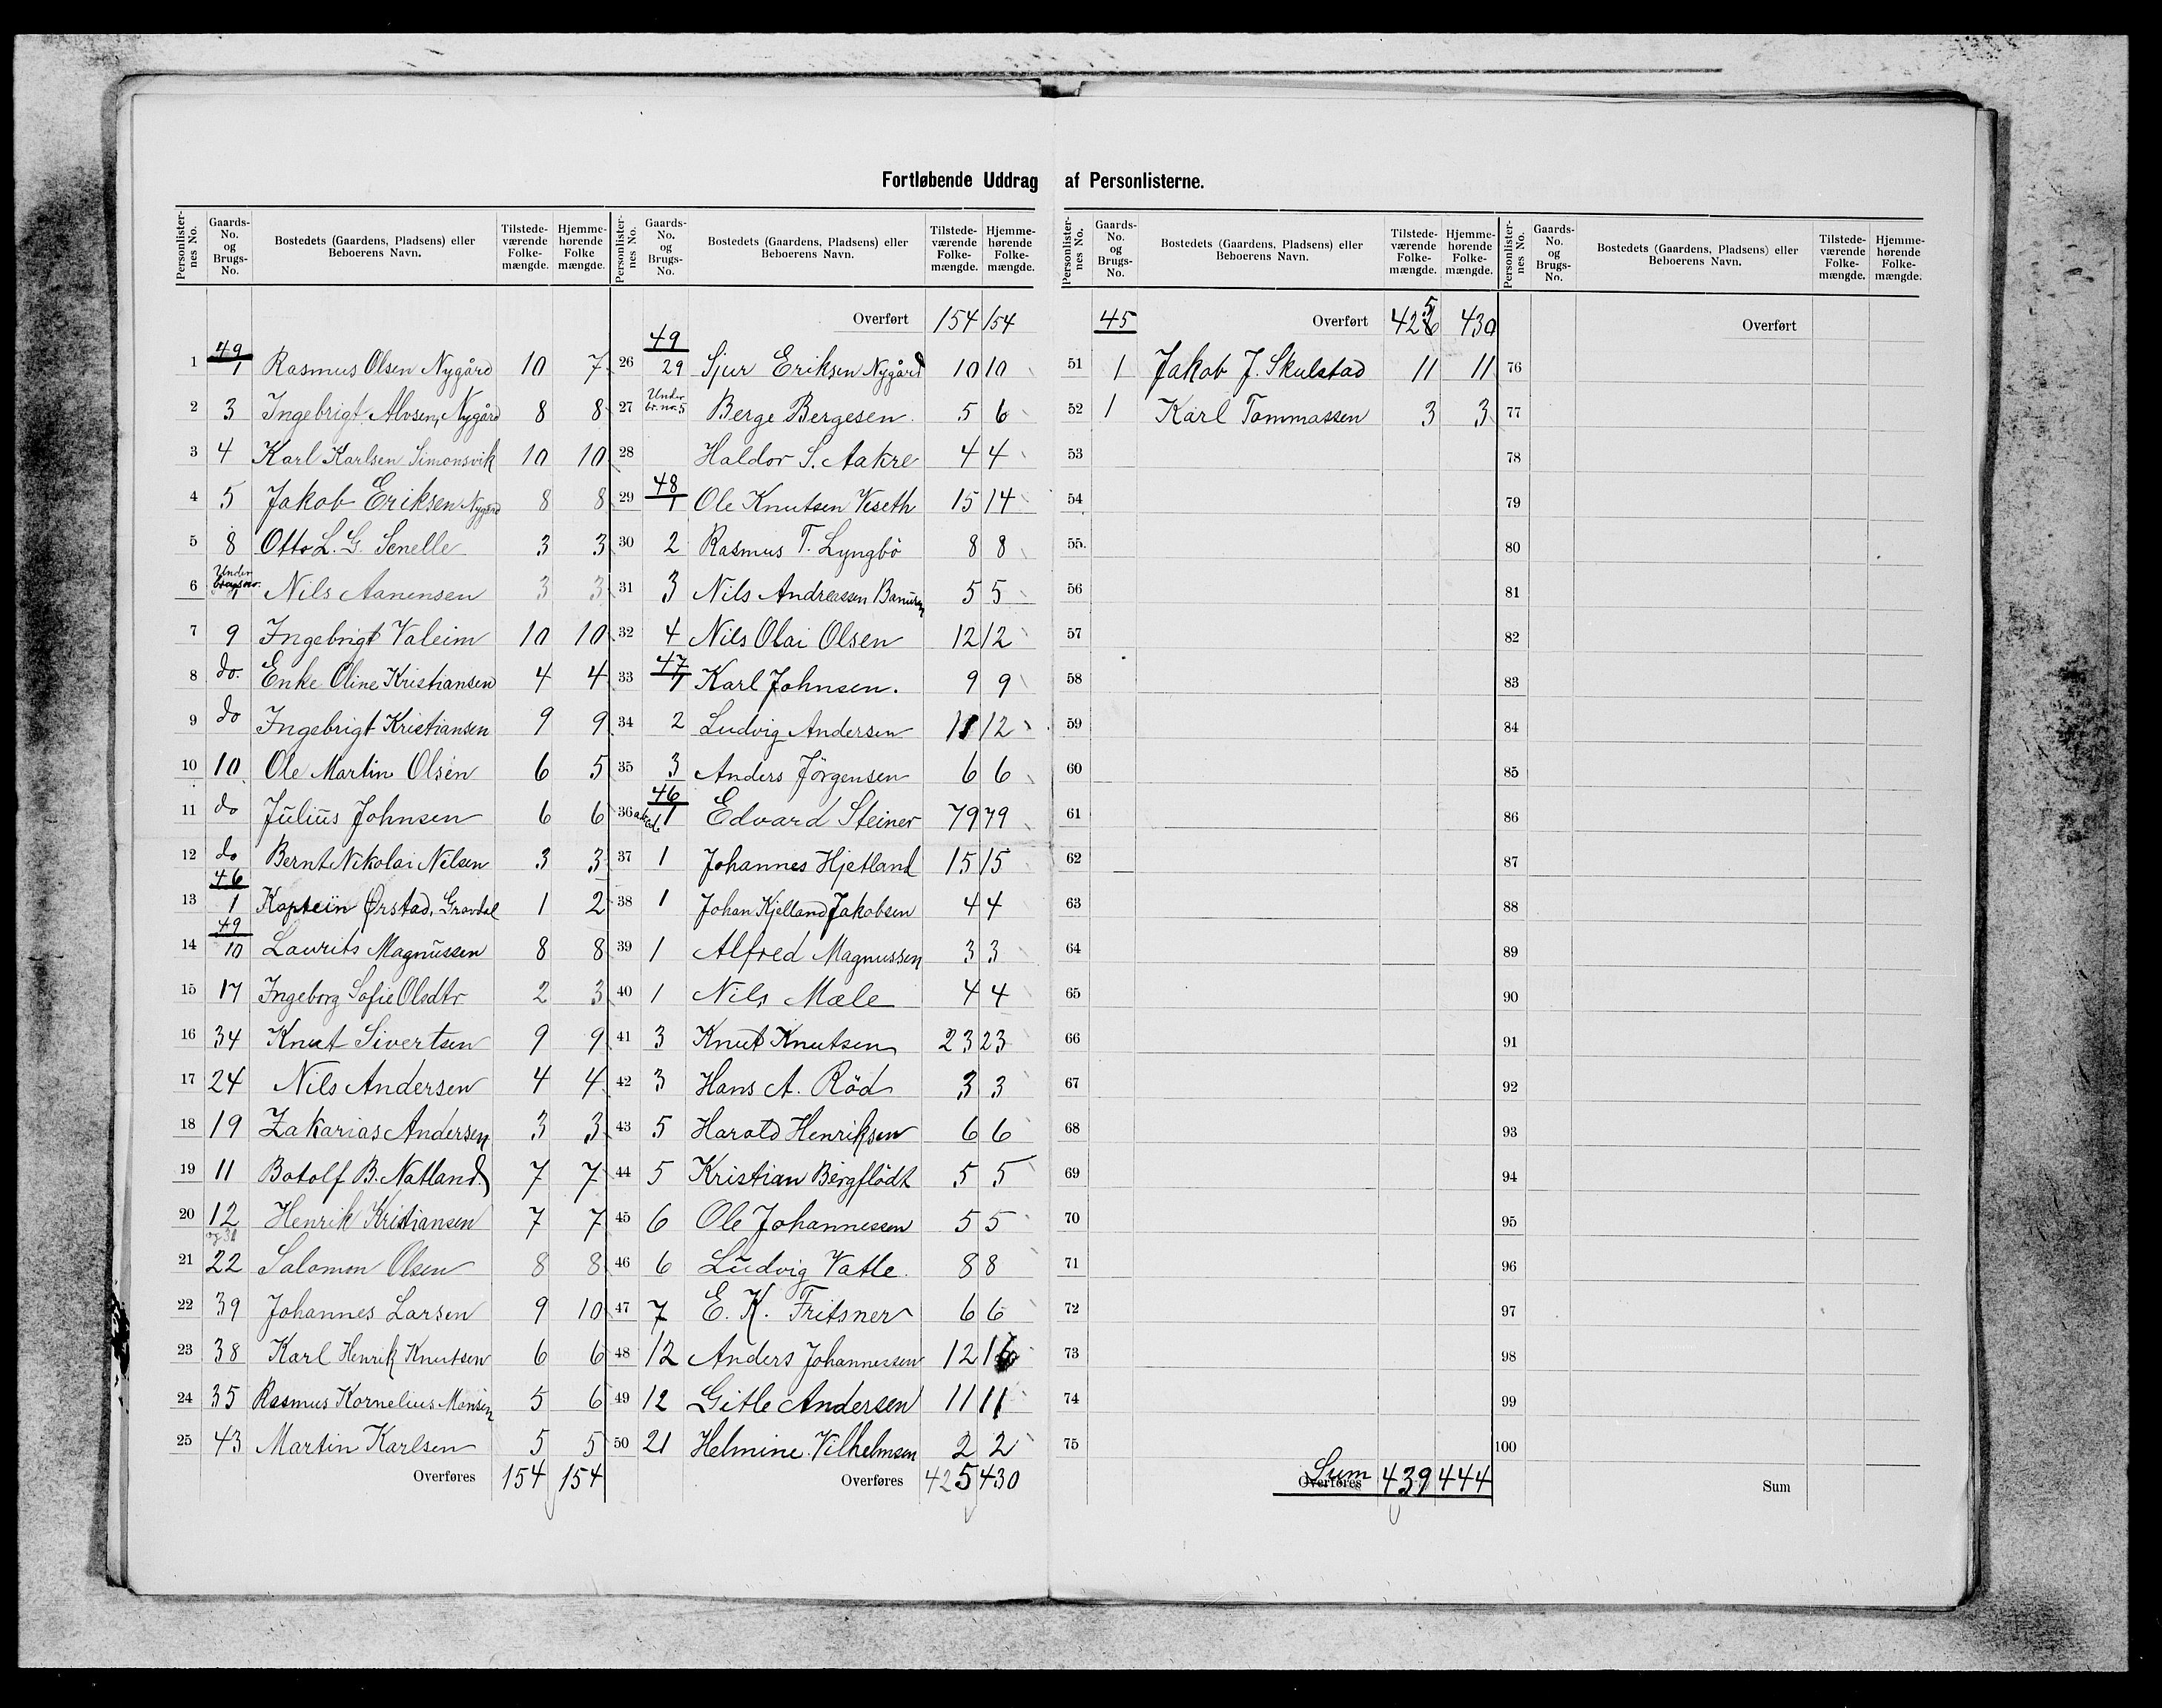 Fortløbende Uddrag af Personlisterne.
Personlisternes No. Gaards-No. og Brugs-No. Bostedets (Gaardens, Pladsens) eller Beboerens Navn. Tilstedeværende Folkemængde. Hjemmehørende Folkemængde.
49
1 1 Rasmus Olsen Nygård 10 7
2 3 Ingebrigt Alvsen, Nygård 8 8
3 4 Karl Karlsen Simonsvik 10 10
4 5 Jakob Eriksen Nygård 8 8
5 8 Otto L. G. Senelle 3 3
Under
6 brugsno. 1 Nils Aanensen 3 3
7 9 Ingebrigt Valeim 10 10
8 do. Enke Oline Kristiansen 4 4
9 do Ingebrigt Kristiansen 9 9
10 10 Ole Martin Olsen 6 5
11 do Julius Johnsen 6 6
12 do Bernt Nikolai Nilsen 3 3
46
13 1 Kaptein Ørstad, Gravdal 1 2
49
14 10 Laurits Magnussen 8 8
15 17 Ingeborg Sofie Olsdtr 2 3
16 34 Knut Sivertsen 9 9
17 24 Nils Andersen 4 4
18 19 Zakarias Andersen 3 3
19 11 Botolf B. Natland. 7 7
20 12 Henrik Kristiansen 7 7
og 31
21 22 Salomon Olsen 8 8
22 39 Johannes Larsen 9 10
23 38 Karl Henrik Knutsen 6 6
24 35 Rasmus Kornelius Monsen 5 6
25 43 Martin Karlsen 5 5
Overføres 154 154
Personlisternes No. Gaards-No. og Brugs-No. Bostedets (Gaardens, Pladsens) eller Beboerens Navn. Tilstedeværende Folkemængde. Hjemmehørende Folkemængde.
Overført 154 154
49
26 29 Sjur Eriksen Nygård 10 10
Under
27 br. no. 5 Berge Bergesen 5 6
28 Haldor S. Aakre 4 4
48
29 1 Ole Knutsen Veseth 15 14
30 2 Rasmus T. Lyngbö 8 8
31 3 Nils Andreassen 5 5
32 4 Nils Olai Olsen 12 12
47
33 1 Karl Johnsen. 9 9
34 2 Ludvig Andersen 11 12
35 3 Anders Jörgensen 6 6
46
36 1 Edvard Steiner 79 79
37 1 Johannes Hjetland 15 15
38 1 Johan Kjelland Jakobsen 4 4
39 1 Alfred Magnussen 3 3
40 1 Nils Mæle 4 4
41 3 Knut Knutsen 23 23
42 3 Hans A. Röd 3 3
43 5 Harald Henriksen 6 6
44 5 Kristian Bergflödt 5 5
45 6 Ole Johannessen 5 5
46 6 Ludvig Vatle. 8 8
47 7 E. K. Fritsner 6 6
48 12 Anders Johannessen 12 16
49 12 Gitle Andersen 11 11
50 21 Helmine Vilhelmsen 2 2
Overføres 425 430
Personlisternes No. Gaards-No. og Brugs-No. Bostedets (Gaardens, Pladsens) eller Beboerens Navn. Tilstedeværende Folkemængde. Hjemmehørende Folkemængde.
45 Overført 425 430
51 1 Jakob J. Skulstad 11 11
52 1 Karl Tommassen 3 3
53
54
55
56
57
58
59
60
61
62
63
64
65
66
67
68
69
70
71
72
73
74
75
Sum
Overføres 439 444
Personlisternes No. Gaards-No. og Brugs-No. Bostedets (Gaardens, Pladsens) eller Beboerens Navn. Tilstedeværende Folkemængde. Hjemmehørende Folkemængde.
Overført
76
77
78
79
80
81
82
83
84
85
86
87
88
89
90
91
92
93
94
95
96
97
98
99
100
Sum